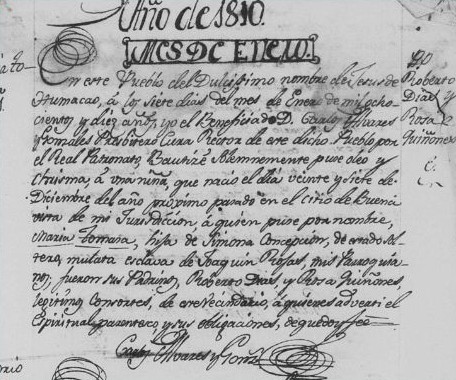 Año de 1810.
MES DE ENERO.
En este Pueblo del Dulcissimo nombre de Jesus de
Humacao, á los siete dias del mes de Enero de mil ocho-
cientos y diez años, yo el Beneficiado D. Carlos Alvares
y Gonsales Presbitero Cura Rector de este dicho Pueblo por
el Real Patronato, Bautizé solemnemente puse oleo y
Chrisma, á una niña, que nació el dia veinte y siete de
Diciembre del año proximo pasado en el citio de Buena
vista de mi Jurisdiccion, á quien puse por nombre,
Maria Tomasa, hija de Simona Concepcion, de estado sol-
tera, mulata esclava de Joaquin Rosas, mis Parroquia-
nos, fueron sus Padrinos, Roberto Dias, y Rosa Quiñones,
legitimos Consortes, de este Vecindario, á quienes advertí el
Espiritual parentezco, y sus obligaciones, de que doy fee
Carlos Alvares y Gonz
Roberto
Dias y
Rosa
Quiñones